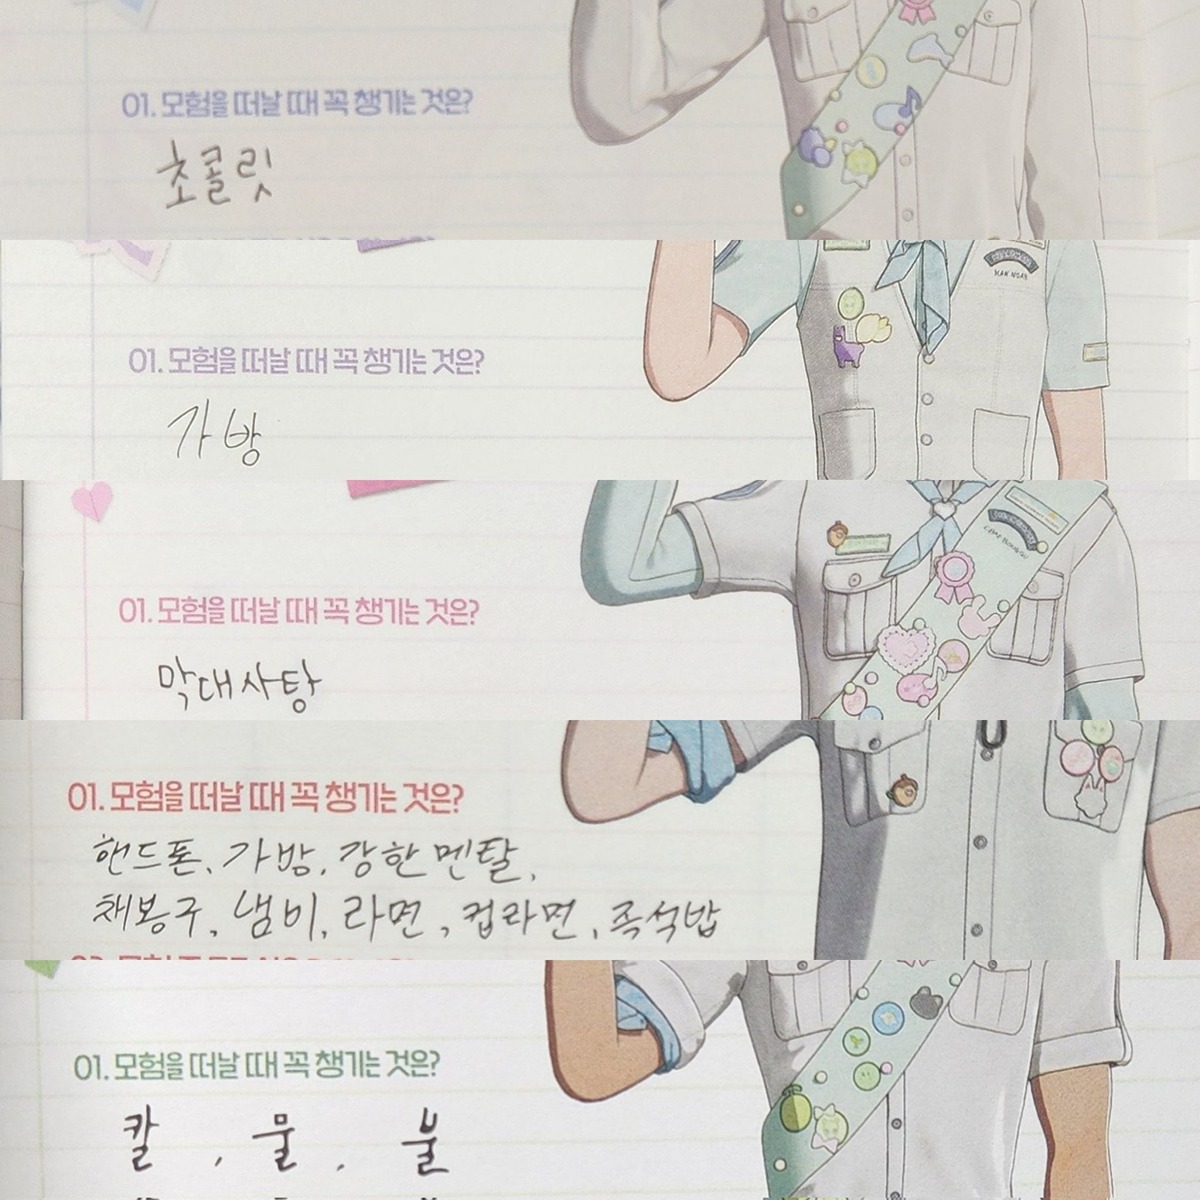 01. 모험을 떠날 때 꼭 챙기는 것은?
초콜릿
01. 모험을 떠날 때 꼭 챙기는 것은?
가방
01. 모험을 떠날 때 꼭 챙기는 것은?
막대사탕
01. 모험을 떠날 때 꼭 챙기는 것은?
핸드폰, 가방, 강한 멘탈,
채봉구, 냄비, 라면, 컵라면, 즉석밥
01. 모험을 떠날 때 꼭 챙기는 것은?
칼, 물, 불